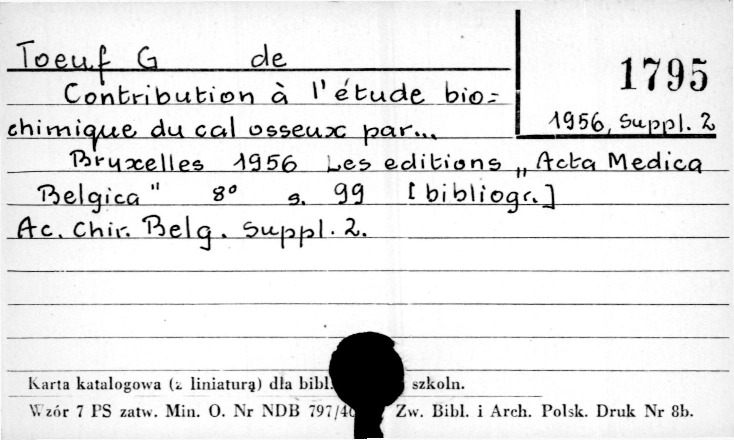 Toeuf G de
1795
Contribution à l'étude bio=
chimique du cal osseux par...
1956, Suppl. 2
Bruxelles 1956 Les editions „Acta Medica
Belgica" 8° s. 99 [bibliogr.]
Ac. Chir. Belg. Suppl. 2.
Karta katalogowa (z liniaturą) dla bibl. szkoln.
Wzór 7 PS zatw. Min. O. Nr NDB 797/ Zw. Bibl. i Arch. Polsk. Druk Nr 8b.